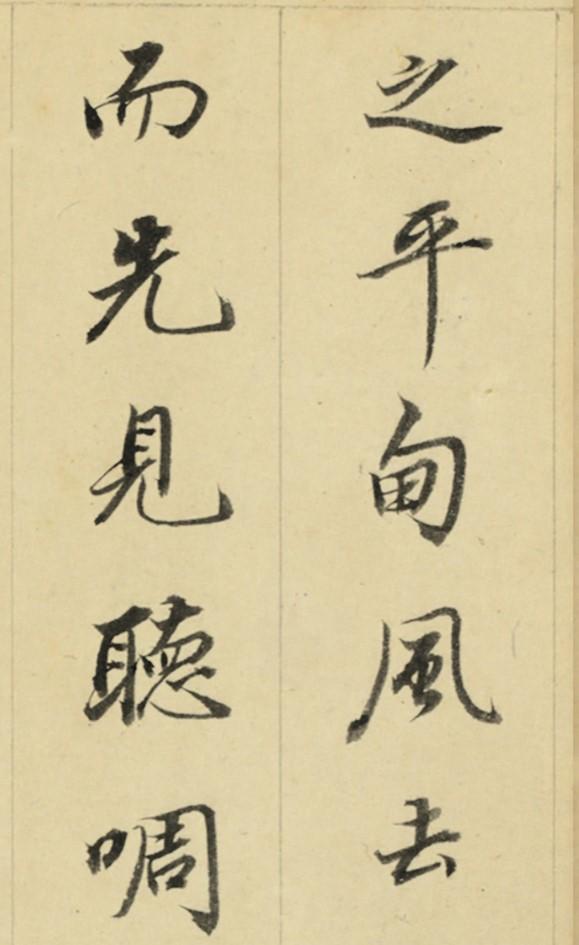 之平甸風去
而先見聽啁